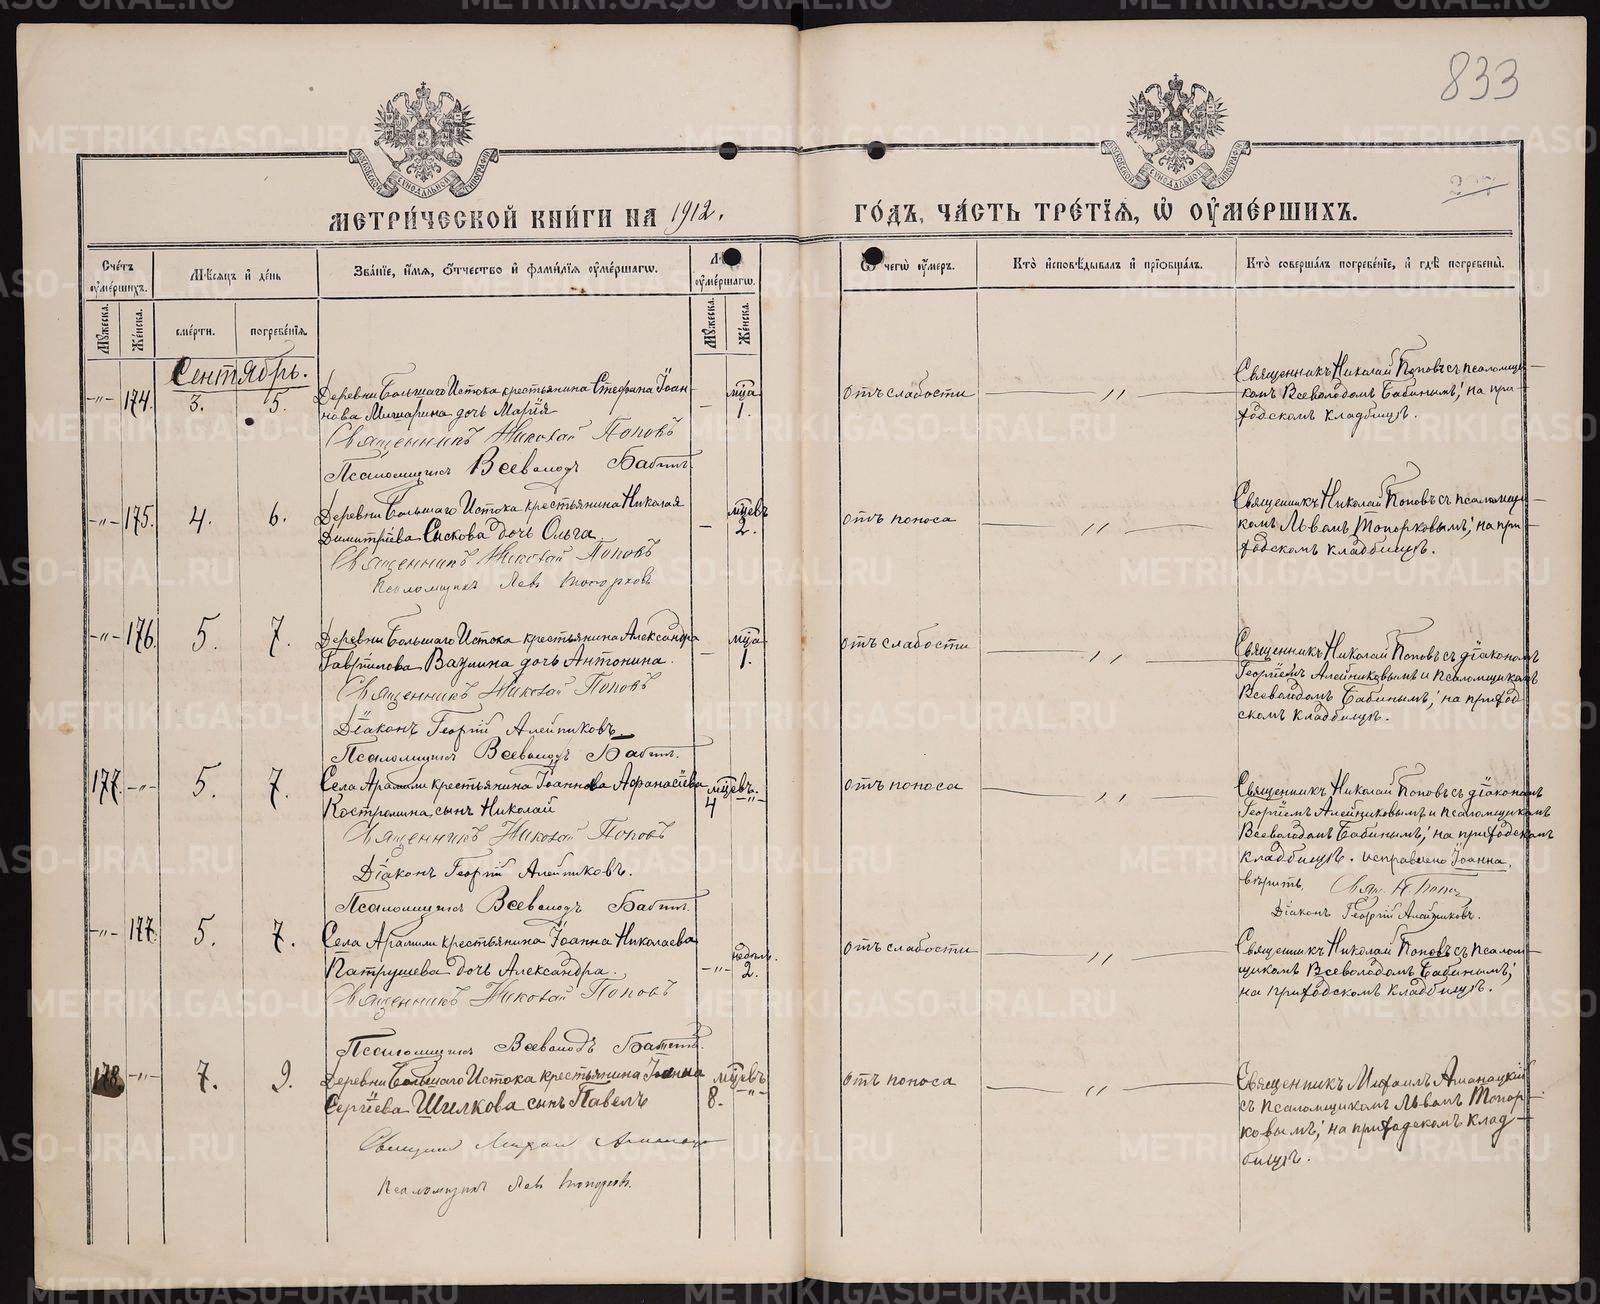 833
МЕТРИ́ЧЕСКОЙ КНИ́ГИ НА 1912.
ГО́ДЪ, ЧА́СТЬ ТРЕ́ТІѦ, Ѡ҆ ОУ҆МЕ́РШИХЪ.
Сче́тъ оу҆ме́ршихъ.
Мѣ́сяцъ и҆ де́нь
Зва́нїе, и҆́мя, ѻ҆́тчество и҆ фами́лїя оу҆ме́ршагѡ.
оу҆ме́ршагѡ.
чегѡ̀ оу҆́меръ.
Кто̀ и҆сповѣ́дывалъ и҆ прїѻбща́лъ.
Кто̀ соверша́лъ погребе́нїе, и҆ гдѣ̀ погребены̀.
Мꙋ́жеска.
Же́нска.
сме́рти.
погребе́нїя.
Мꙋ́жеска.
Же́нска.
Сентябрь.
-"- 174. 3. 5.
Деревни Большаго Истока крестьянина Стефана Іоан-
нова Мишарина дочь Марія
Священникъ Николай Поповъ
Псаломщикъ Всеволодъ Бабинъ.
мца
1.
отъ слабости
"
Священникъ Николай Поповъ съ псаломщи-
комъ Всеволодомъ Бабинымъ; на при-
ходскомъ кладбищѣ.
-"- 175. 4. 6.
Деревни Большаго Истока крестьянина Николая
Димитріева Сыскова дочь Ольга
Священникъ Николай Поповъ
Псаломщикъ Левъ Топорковъ
мцевъ
2.
отъ поноса
"
Священникъ Николай Поповъ съ псаломщи-
комъ Львомъ Топорковымъ; на при-
ходскомъ кладбищѣ.
-"- 176. 5. 7.
Деревни Большаго Истока крестьянина Александра
Гавріилова Ваулина дочь Антонина.
Священникъ Николай Поповъ
Діаконъ Георгій Алейниковъ.
Псаломщикъ Всеволодъ Бабинъ.
мца
1.
отъ слабости
"
Священникъ Николай Поповъ съ діакономъ
Георгіемъ Алейниковымъ и псаломщикомъ
Всеволодомъ Бабинымъ; на приход-
скомъ кладбищѣ.
177. -"- 5. 7.
Села Арамили крестьянина Іоаннова Афанасіева
Костромина сынъ Николай
Священникъ Николай Поповъ
Діаконъ Георгій Алейниковъ.
Псаломщикъ Всеволодъ Бабинъ.
мцевъ.
4 -"-
отъ поноса
"
Священникъ Николай Поповъ съ діакономъ
Георгіемъ Алейниковымъ и псаломщикомъ
Всеволодомъ Бабинымъ; на приходскомъ
кладбищѣ. исправлено Іоанна
вѣрить. Свящ. Н. Поповъ
Діаконъ Георгій Алейниковъ.
-"- 177 5. 7.
Села Арамили крестьянина Іоанна Николаева
Патрушева дочь Александра.
Священникъ Николай Поповъ
Псаломщикъ Всеволодъ Бабинъ.
недѣль.
-"- 2.
отъ слабости
"
Священникъ Николай Поповъ съ псалом-
щикомъ Всеволодомъ Бабинымъ;
на приходскомъ кладбищѣ.
178. -"- 7. 9.
Деревни Большаго Истока крестьянина Іоанна
Сергіева Шилкова сынъ Павелъ
Священникъ Михаилъ
Псаломщикъ Левъ Топорковъ.
мцевъ
8. -"-
отъ поноса
"
Священникъ Михаилъ Аманацкій
съ псаломщикомъ Львомъ Топор-
ковымъ; на приходскомъ клад-
бищѣ.
METRIKI.GASO-URAL.RU